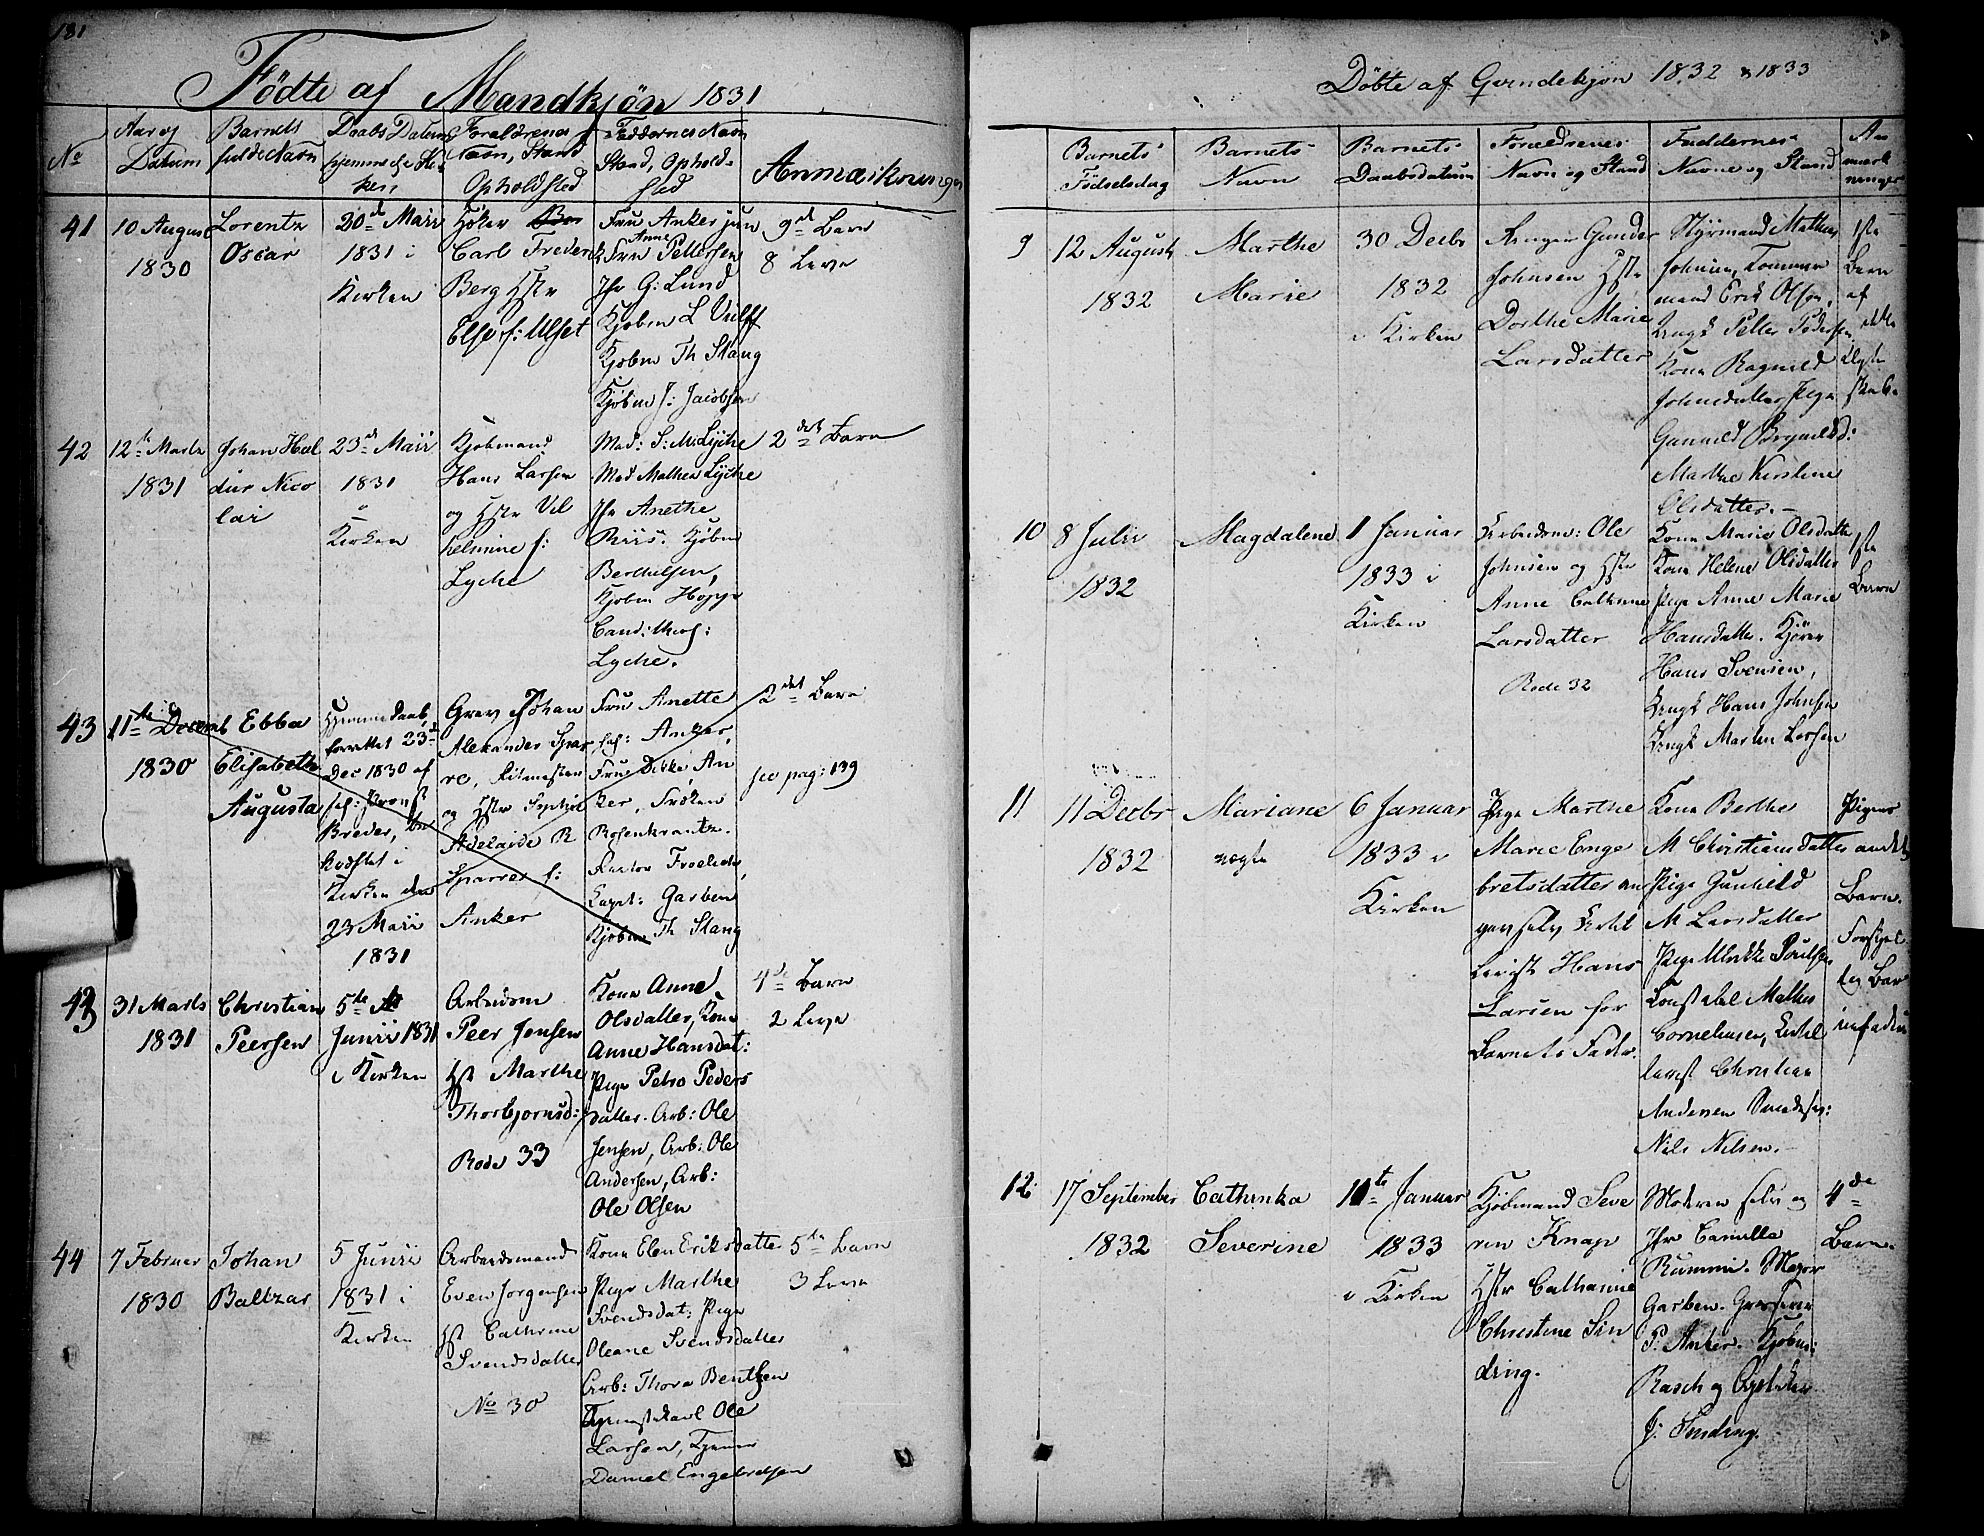 181
Fødte af Mandkjøn 1831
No
Aar og
Datum
Barnets
fulde Navn
Daabs Datum
hjemme ell. Kir
ken
Forældrenes
Navn, Stand
Opholdsted
Faddernes Navn
Stand, Ophold-
sted
Anmærkninger
41
10 August
1830
Lorentz
Oscar
20de Maii
1831 i
Kirken
Høker
Carl Frederik
Berg Hstr
Else f: Ulset
Fru Anker jun
Fru Anne Pettersen
Jfr G: Lund
Kjøbm L Vulff
Kjøbm Th Stang
Kjøbm J: Jacobsen
9de Barn
8 Leve
42
12te Marts
1831
Johan Hal
dur Nico
lai
23de Maii
1831
i
Kirken
Kjøbmand
Hans Larsen
og Hstr Vil
helmine f:
Lyche
Mad: S: M: Lyche
Mad Mathea Lyche
Jfr Anethe
Riis. Kjøbm
Berthelsen,
Kjøbm Hoppe
Cand: theol:
Lyche.
2det Barn
43
11te Decemb
1830
Ebba
Elisabeth
Augusta
Hjemmedaab,
forrettet 23de
Dec 1830 af
Provst
Breder,
stadfæstet i
Kirken den
23 Maii
1831
Grev Johan
Alexander Spar
re, Ritmester
og Hstr Sophie
Adelaide R
Sparre f:
Anker
Fru Anette
sal: Anker,
Fru Dikke An
ker, Frøken
Rosenkrantz.
Pastor Froelich,
Capt: Garben
Kjøbm Th Stang
2det Barn
see pag: 139
43
31 Marts
1831
Christian
Peersen
5te
Junii 1831
i Kirken
Arbeidsm
Peer Jensen
Hst Marthe
Thorbjørnsd:
Rode 33
Kone Anne
Olsdatter, Kone
Anne Hansdat:
Pige Petro Peders
datter. Arb: Ole
Jensen, Arb: Ole
Andersen, Arb:
Ole Olsen
4de Barn
2 Leve
44
7 Februar
1830
Johan
Baltzar
5 Junii
1831 i
Kirken
Arbeidsmand
Even Jorgensen
Hst Cathrine
Svendsdatter
No 30
Kone Elen Eriksdatter
Pige Marthe
Svendsdat: Pige
Oleane Svendsdatter
Arb: Thore Bentsen
Tjenestekarl Ole
Larsen, Tjener
Daniel Engebretsen
5te Barn
3 Leve
Döbte af Qvindekjön 1832 & 1833
Barnets
Födselsdag
Barnets
Navn
Barnets
Daabsdatum
Forældrenes
Navn og Stand
Faddernes
Navne og Stand
An
mærk
ninger
9
12 August
1832
Marthe
Marie
30 Decbr
1832
i Kirken
Gunder
Johnsen Hstr
Dorthe Marie
Larsdatter
Styrmand Mathias
Johnsen, Tømmer
mand Erik Olsen,
Ungk Petter Pedersen
Kone Ragnild
Johnsdatter Pige
Gunnild Brynilds:
Marthe Kirstine
Olsdatter.-
1ste
Barn
af
dette
Ægte
skab
10
8 Julii
1832
Magdalene
1 Januar
1833 i
Kirken
Arbeidsm: Ole
Johnsen og Hstr
Anne Cathrine
Larsdatter
Rode 32
Kone Marie Olsdatter
Kone Helene Olsdatter
Pige Anne Marie
Hansdatter. Kjører
Hans Svensen,
Ungk Hans Johnsen
Ungk Marten Larsen
1ste
Barn
11
11 Decbr
1832
Mariane
uægte
6 Januar
1833 i
Kirken
Pige Marthe
Marie Enge
bretsdatter an
gav selv Enkel
Hans
Larsen for
Barnets Fader.
Kone Berthe
M Christiansdatter
Pige Gunhild
M Larsdatter
Pige Ulrikke Poulsen
Constabel Mathis
Corneliusen, Enkel
Christian
Andersen Smedsv:
Nils Nilsen.-
Pigens
andet
Barn.
12
17 September
1832
Cathinka
Severine
11te Januar
1833
i Kirken
Kjøbmand Seve
rin Knap
Hstr Cathrine
Christine Sin
ding.
Moderen selv og
Jfr Camilla
Rumm. Major
Garben. Grosserer
P. Anker. Kjøbm:
Rasch og Apoteker
J: Sinding.
4de
Barn.